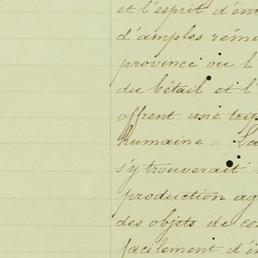 et l'esprit d'ent
d'amples rému
province ou l
du bétail et l'
offrent une trip
humaine. La
s'y trouverait
production ag
des objets de co
facilement d'